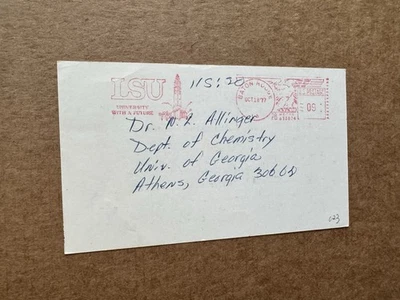 LSU
UNIVERSITY
WITH A FUTURE
115:20
BATON ROUGE
OCT 28'77
09
Dr. N. L. Allinger
Dept. of Chemistry
Univ. of Georgia
Athens, Georgia 30602
023